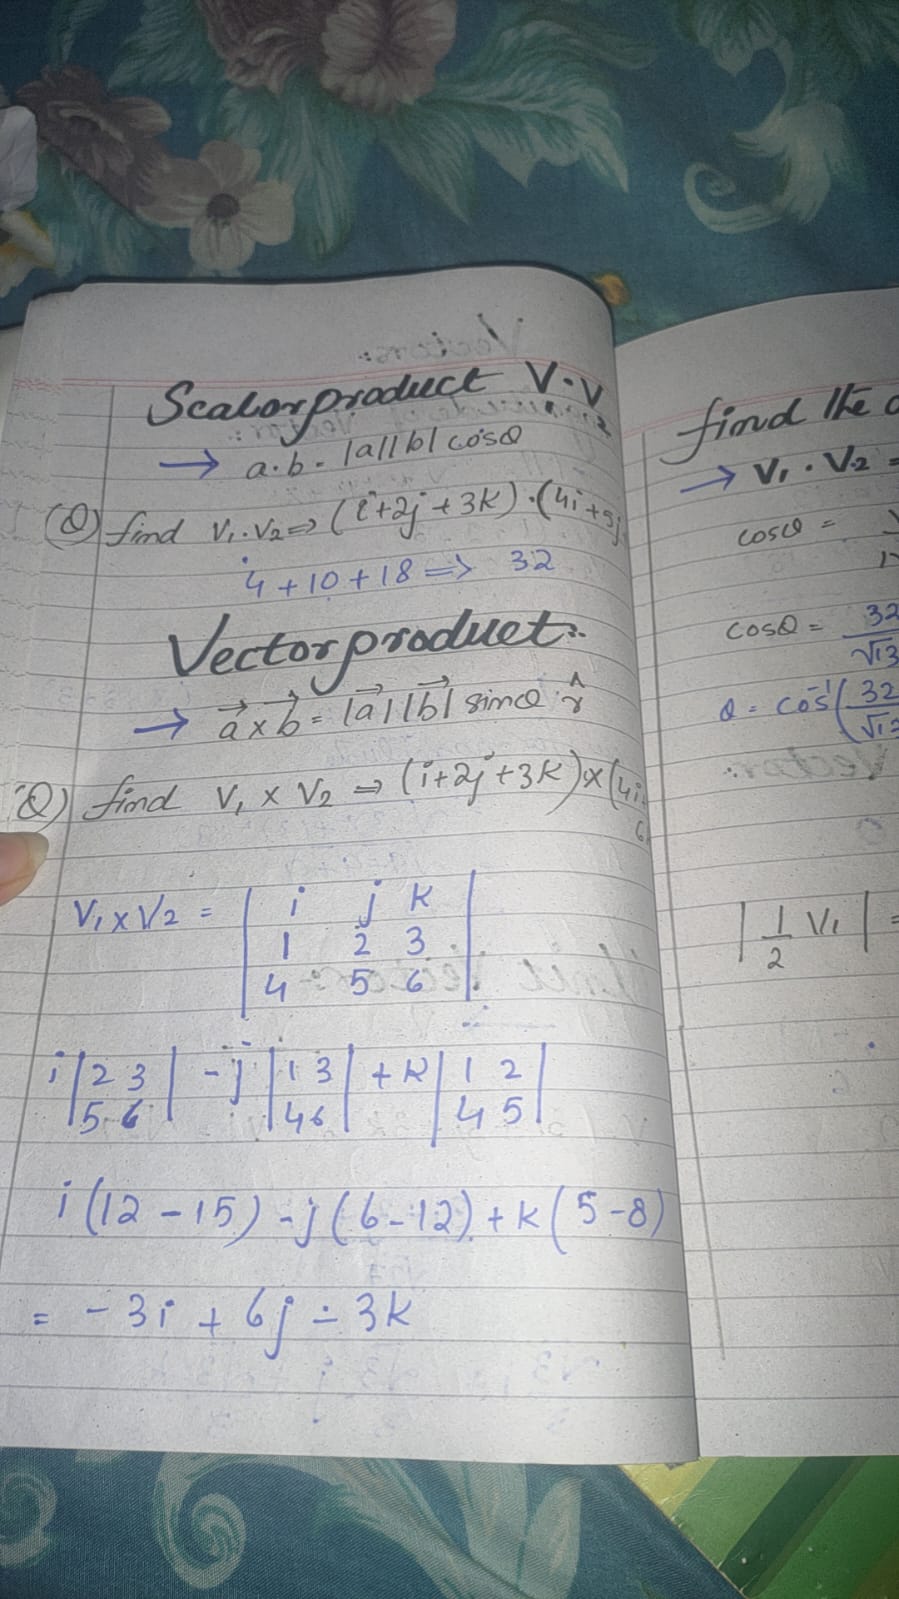 Scalar product V.V
→ a.b = |a||b| cosθ
(Q) find V₁.V₂ ⇒ (i+2j+3k).(4i+5j
4+10+18 ⇒ 32
Vector product:-
→ a⃗ x b⃗ = |a⃗||b⃗| sinθ r̂
(Q) find V₁ x V₂ ⇒ (i+2j+3k)x(4i
6
V₁ x V₂ = | i j k |
| 1 2 3 |
| 4 5 6 |
i |2 3| - j |1 3| + k |1 2|
|5 6| |4 6| |4 5|
i (12 - 15) - j (6 - 12) + k (5 - 8)
= - 3i + 6j - 3k
find the
→ V₁ . V₂ =
cosθ =
cosθ = 32
√13
θ = cos⁻¹ (32
√13
| 1/2 V₁ | =